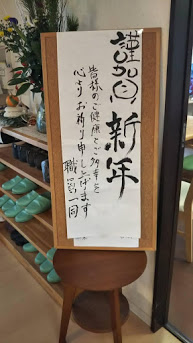 謹賀新年
皆様のご健康とご多幸を
心よりお祈り申し上げます
職員一同